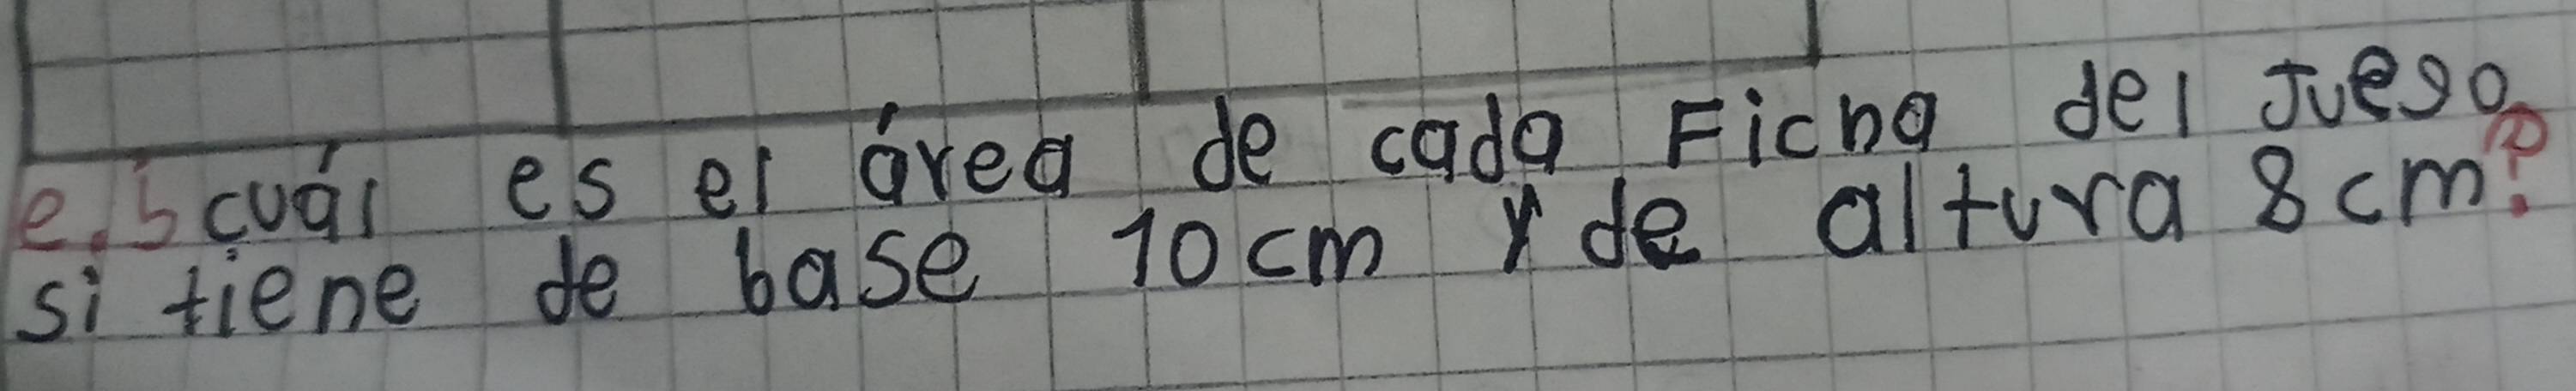 e. ¿cuál es el área de cada Ficha del Juego
si tiene de base 10 cm y de altura 8 cm?